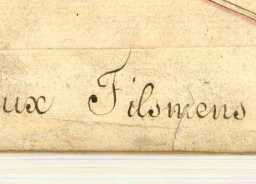 ux Filsmens